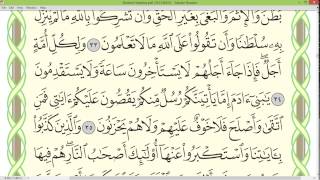 بَطَنَ وَالْإِثْمَ وَالْبَغْيَ بِغَيْرِ الْحَقِّ وَأَنْ تُشْرِكُوا بِاللَّهِ مَا لَمْ يُنَزِّلْ
بِهِ سُلْطَانًا وَأَنْ تَقُولُوا عَلَى اللَّهِ مَا لَا تَعْلَمُونَ ٣٣ وَلِكُلِّ أُمَّةٍ
أَجَلٌ فَإِذَا جَاءَ أَجَلُهُمْ لَا يَسْتَأْخِرُونَ سَاعَةً وَلَا يَسْتَقْدِمُونَ ٣٤
يَا بَنِي آدَمَ إِمَّا يَأْتِيَنَّكُمْ رُسُلٌ مِنْكُمْ يَقُصُّونَ عَلَيْكُمْ آيَاتِي فَمَنِ
اتَّقَى وَأَصْلَحَ فَلَا خَوْفٌ عَلَيْهِمْ وَلَا هُمْ يَحْزَنُونَ ٣٥ وَالَّذِينَ كَذَّبُوا
بِآيَاتِنَا وَاسْتَكْبَرُوا عَنْهَا أُولَئِكَ أَصْحَابُ النَّارِ هُمْ فِيهَا